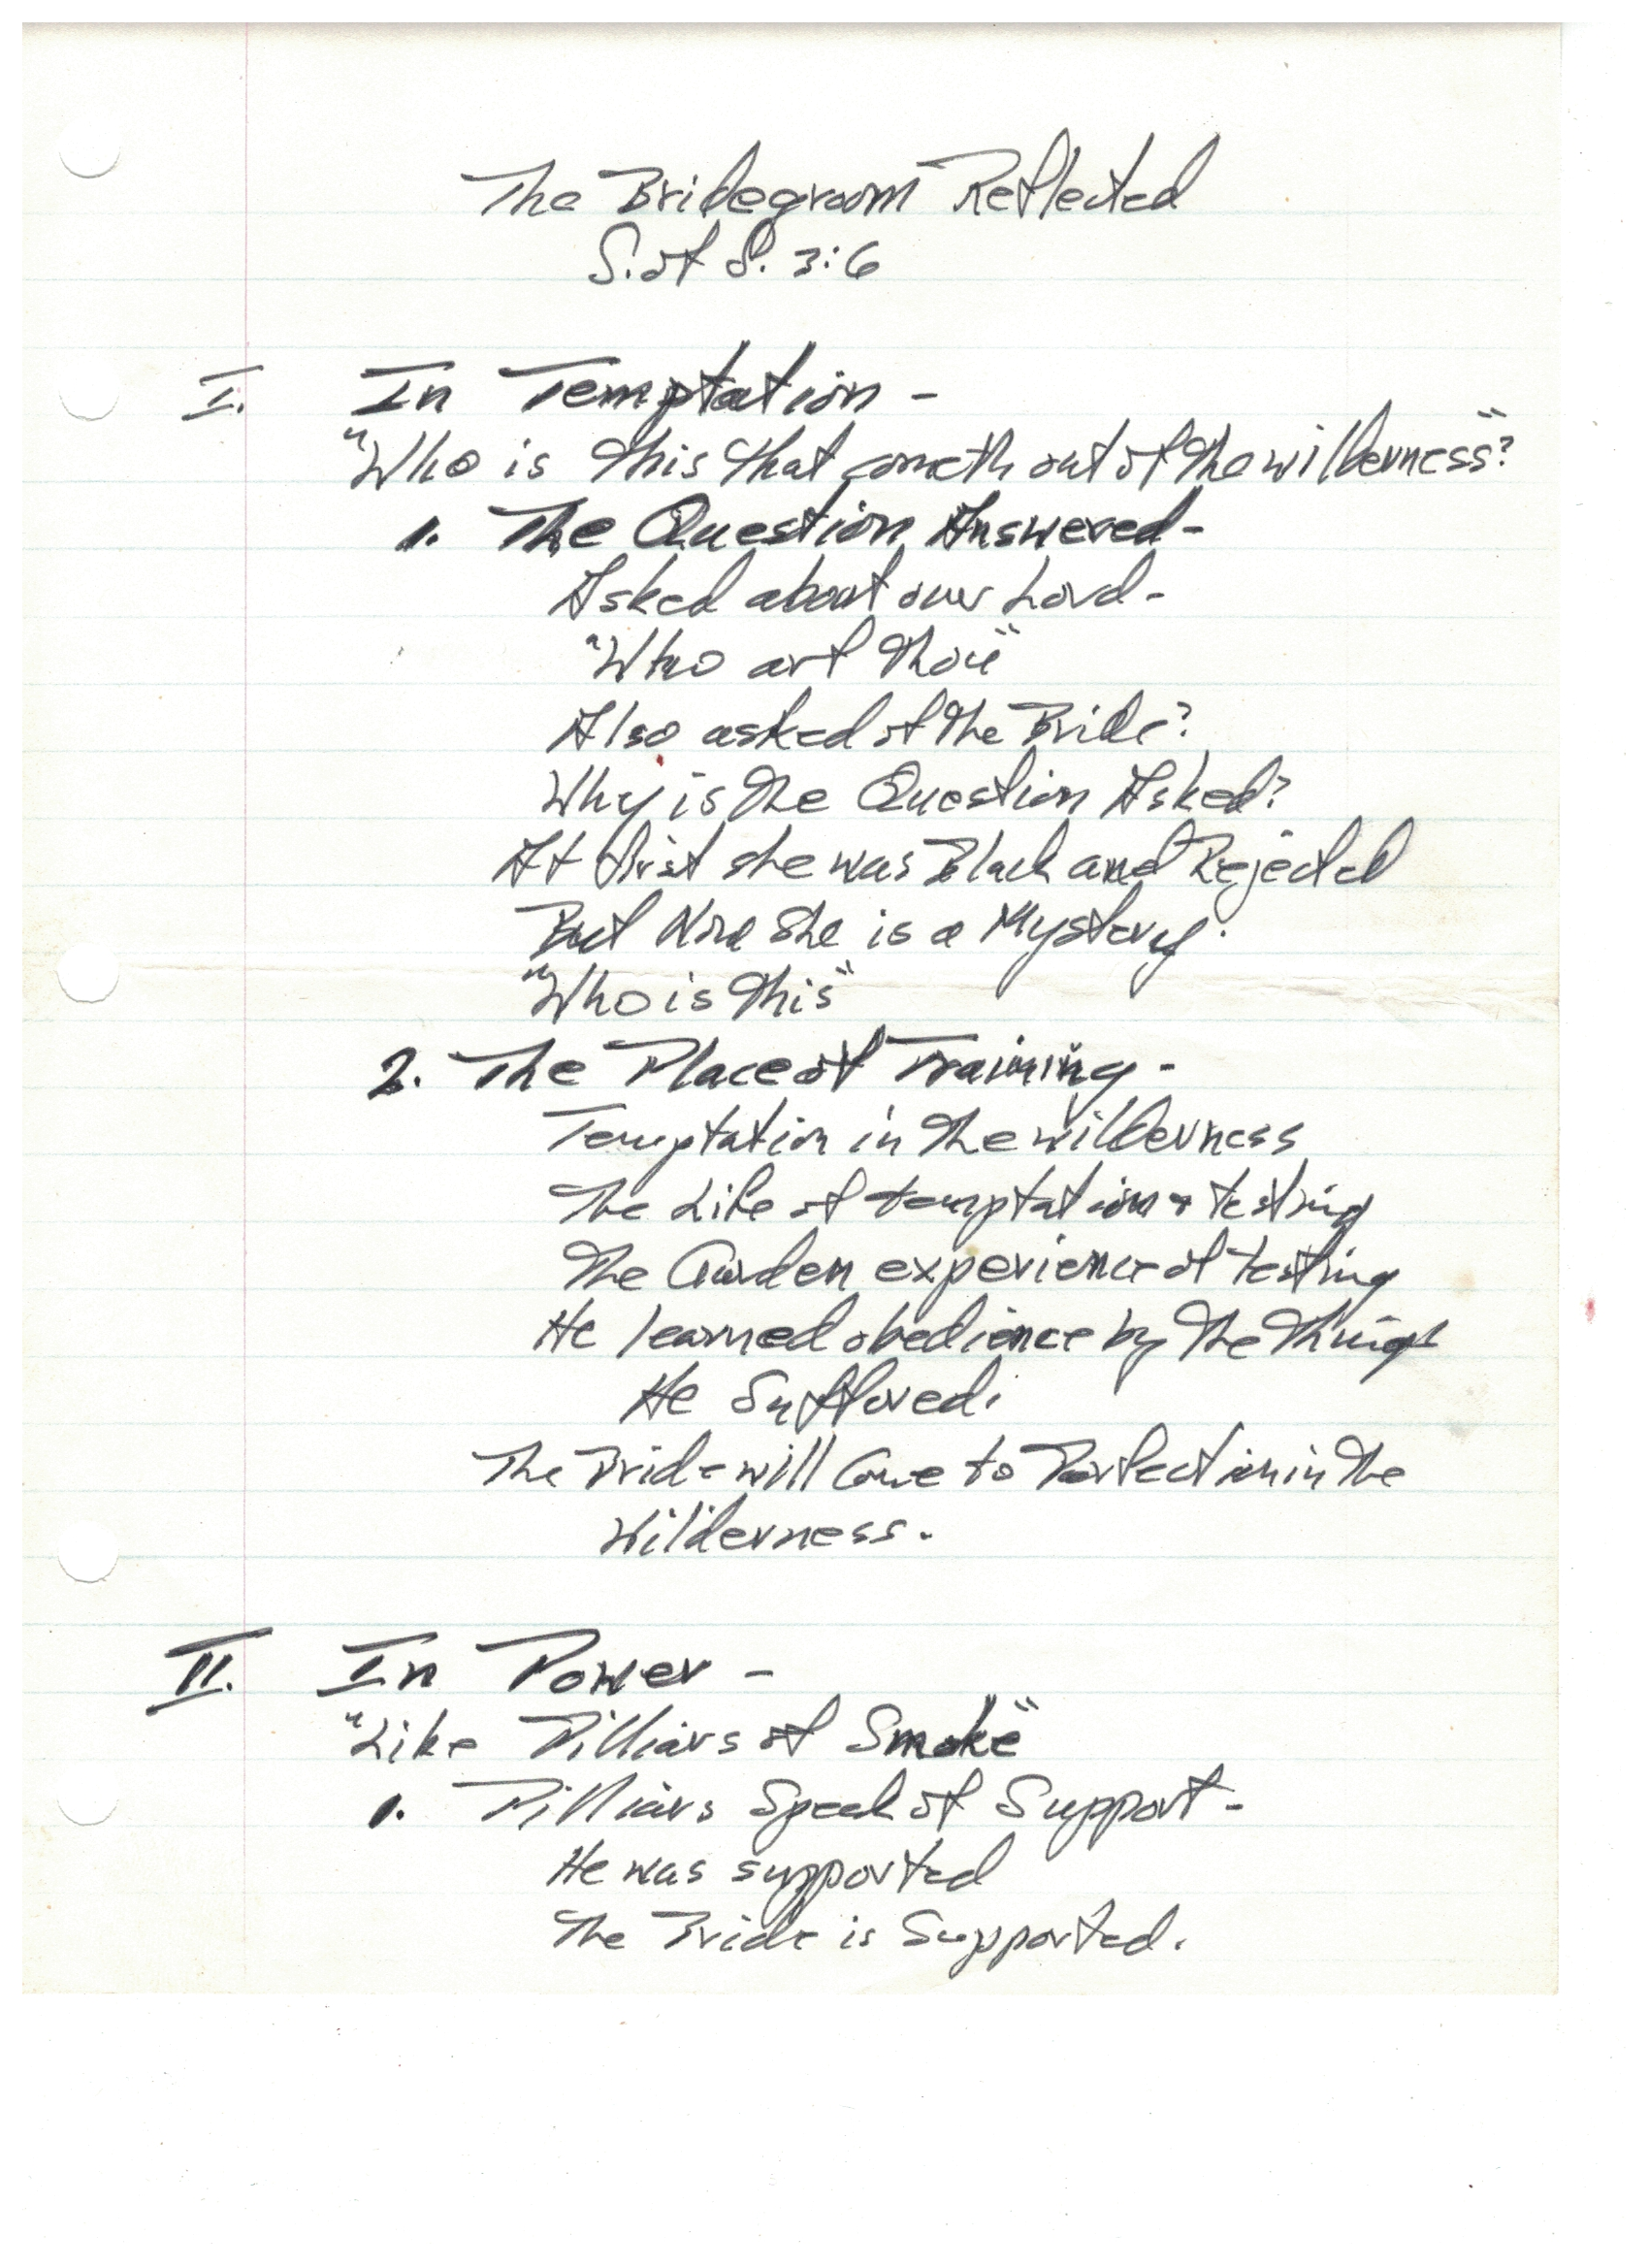 The Bridegroom Reflected
S. of S. 3:6
I. In Temptation -
"Who is this that cometh out of the wilderness"?
1. The Question Answered -
Asked about our Lord -
"Who art thou"
Also asked of the Bride?
Why is the Question Asked?
At first she was Black and Rejected
But Now she is a Mystery.
"Who is this"
2. The Place of Training -
Temptation in the wilderness
The Life of temptation & testing
The Garden experience of testing
He learned obedience by the things
He Suffered.
The Bride will Come to Perfection in the
Wilderness.
II. In Power -
"Like Pilliars of Smoke"
1. Pilliars Speak of Support -
He was supported
The Bride is Supported.